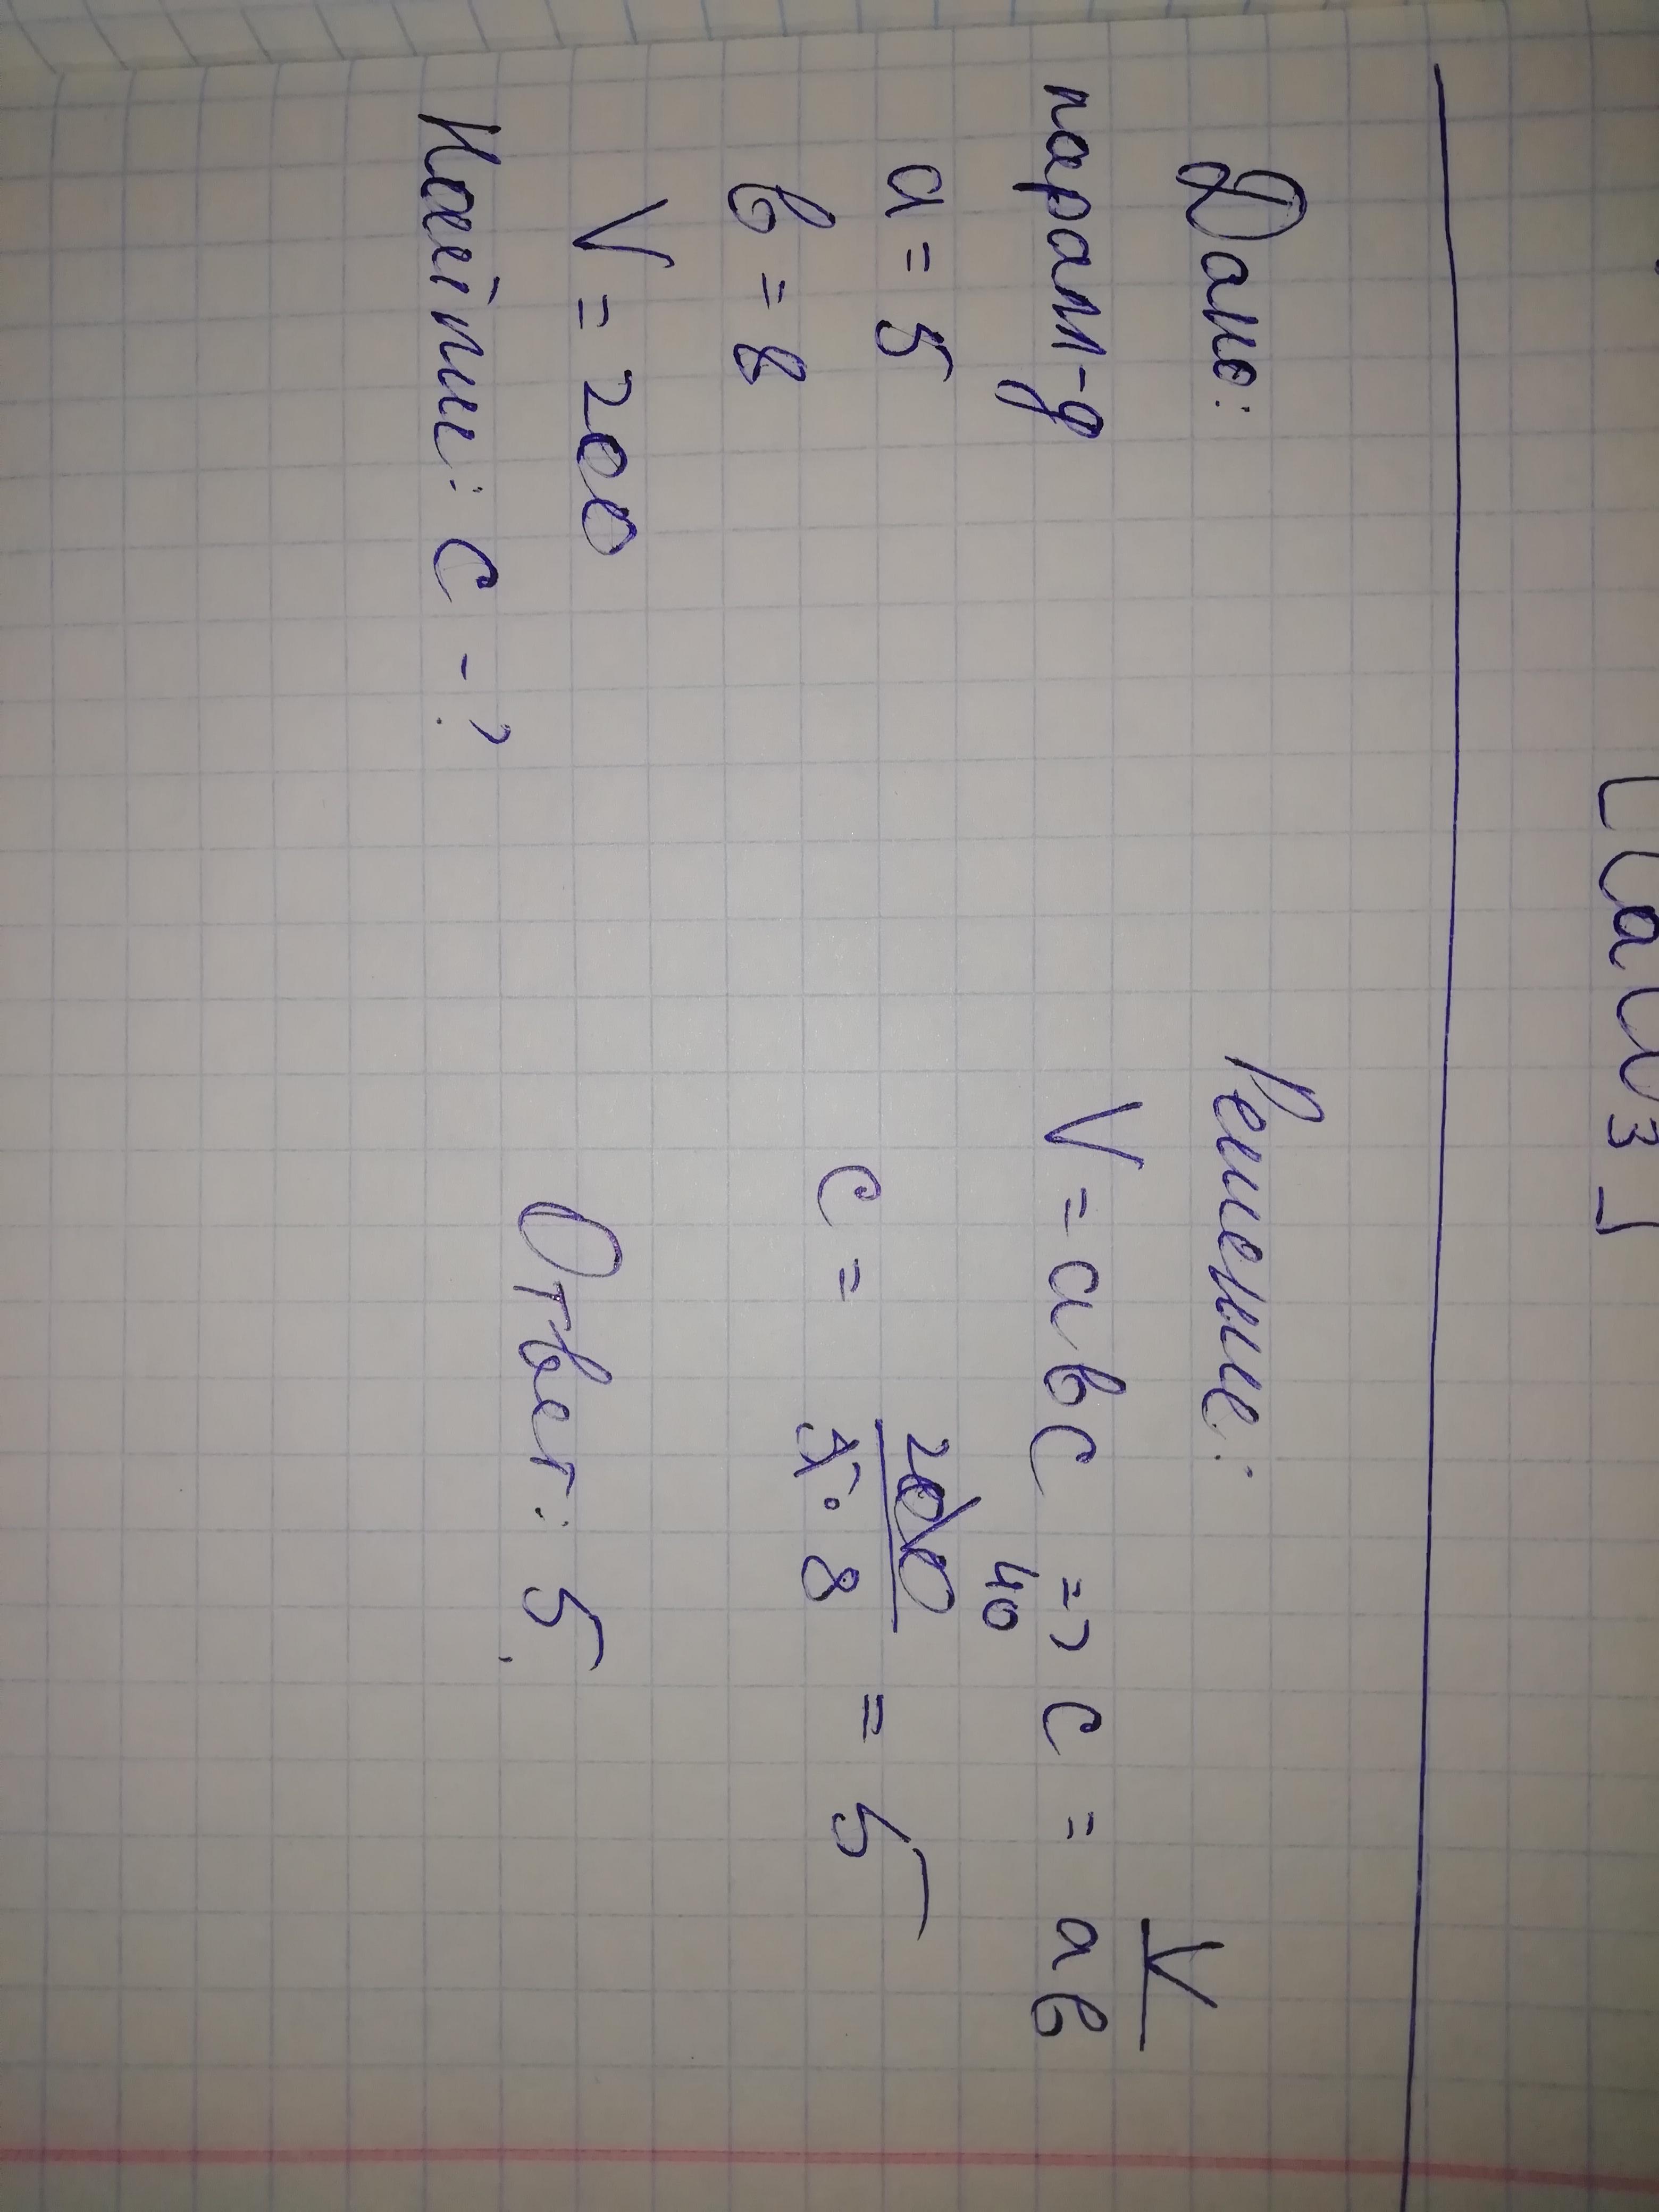 Дано:
парал-д
a = 5
в = 8
V = 200
Найти: c - ?
Решение:
V = abc => c = V/ав
40
c = 200/5·8 = 5
Ответ: 5.